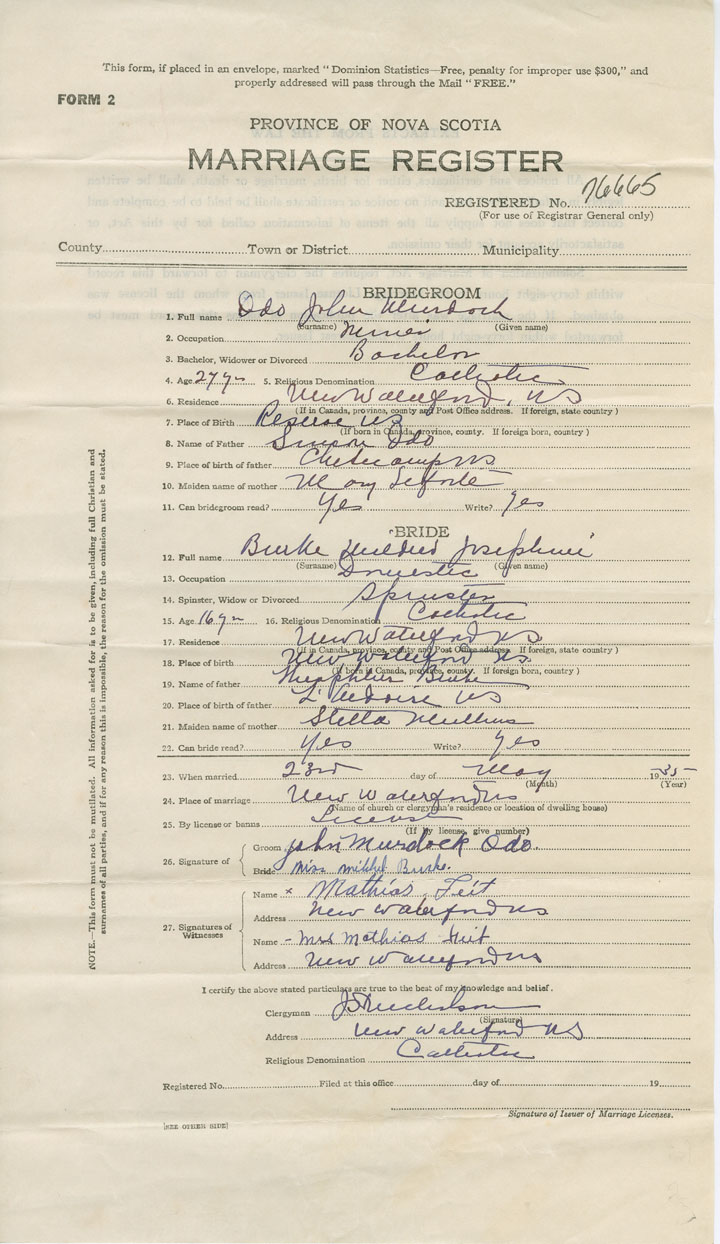 This form, if placed in an envelope, marked "Dominion Statistics—Free, penalty for improper use $300," and
properly addressed will pass through the Mail "FREE."
FORM 2
PROVINCE OF NOVA SCOTIA
MARRIAGE REGISTER
REGISTERED No. 76665
(For use of Registrar General only)
County Town or District Municipality
BRIDEGROOM
1. Full name Odo John Murdock
(Surname) (Given name)
2. Occupation Miner
3. Bachelor, Widower or Divorced Bachelor
4. Age 27 yrs 5. Religious Denomination Catholic
6. Residence New Waterford, NS
(If in Canada, province, county and Post Office address. If foreign, state country)
7. Place of Birth Reserve NS
(If born in Canada, province, county. If foreign born, country)
8. Name of Father Simon Odo
9. Place of birth of father Cheticamp NS
10. Maiden name of mother Mary
11. Can bridegroom read? Yes Write? Yes
BRIDE
12. Full name Burke Mildred Josephine
(Surname) (Given name)
13. Occupation Domestic
14. Spinster, Widow or Divorced Spinster
15. Age 16 yrs 16. Religious Denomination Catholic
17. Residence New Waterford NS
(If in Canada, province, county and Post Office address. If foreign, state country)
18. Place of birth New Waterford NS.
(If born in Canada, province, county. If foreign born, country)
19. Name of father Burke
20. Place of birth of father L'Ardoise NS
21. Maiden name of mother Stella Mullins
22. Can bride read? Yes Write? Yes
23. When married 23rd day of May 1935
(Month) (Year)
24. Place of marriage New Waterford NS
(Name of church or clergyman's residence or location of dwelling house)
25. By license or banns License
(If by license, give number)
26. Signature of Groom John Murdock Odo.
Bride Miss Mildred Burke.
27. Signatures of Witnesses
Name x Mathias Feit
Address New Waterford NS
Name - Mrs Mathias Feit
Address New Waterford NS
I certify the above stated particulars are true to the best of my knowledge and belief.
Clergyman Nicholson
(Signature)
Address New Waterford NS
Religious Denomination Catholic
Registered No. Filed at this office day of 19
Signature of Issuer of Marriage Licenses.
[SEE OTHER SIDE]
NOTE.—This form must not be mutilated. All information asked for is to be given, including full Christian and
surnames of all parties, and if for any reason this is impossible, the reason for the omission must be stated.